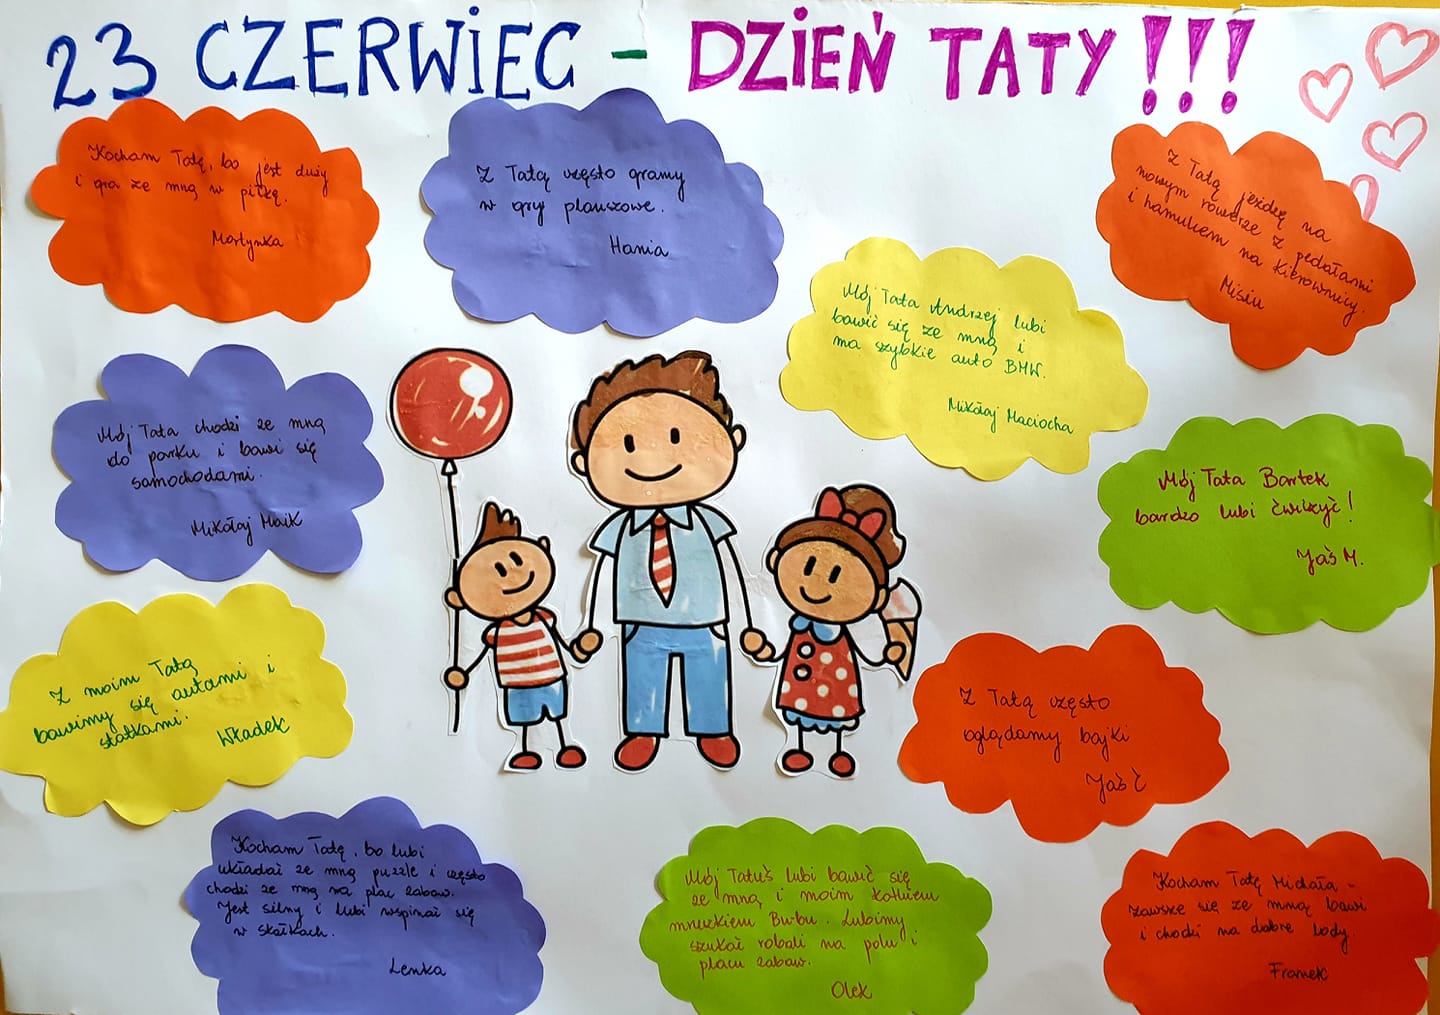 23 CZERWIEC - DZIEŃ TATY!!!
Kocham Tatę, bo jest duży
i gra ze mną w piłkę.
Martynka
Z Tatą często gramy
w gry planszowe.
Hania
Z Tatą jeżdżę na
nowym rowerze z pedałami
i hamulcem na kierownicy.
Misiu
Mój Tata Andrzej lubi
bawić się ze mną i
ma szybkie auto BMW.
Mikołaj Maciocha
Mój Tata chodzi ze mną
do parku i bawi się
samochodami.
Mikołaj Maik
Mój Tata Bartek
bardzo lubi ćwiczyć!
Jaś M.
Z moim Tatą
bawimy się autami i
statkami.
Władek
Z Tatą często
oglądamy bajki
Jaś Ć
Kocham Tatę, bo lubi
układać ze mną puzzle i często
chodzi ze mną na plac zabaw.
Jest silny i lubi wspinać się
w skałkach.
Lenka
Mój Tatuś lubi bawić się
ze mną i moim kotkiem
mruczkiem Bu-bu. Lubimy
szukać robali na polu i
placu zabaw.
Olek
Kocham Tatę Michała -
zawsze się ze mną bawi
i chodzi na dobre lody.
Franek